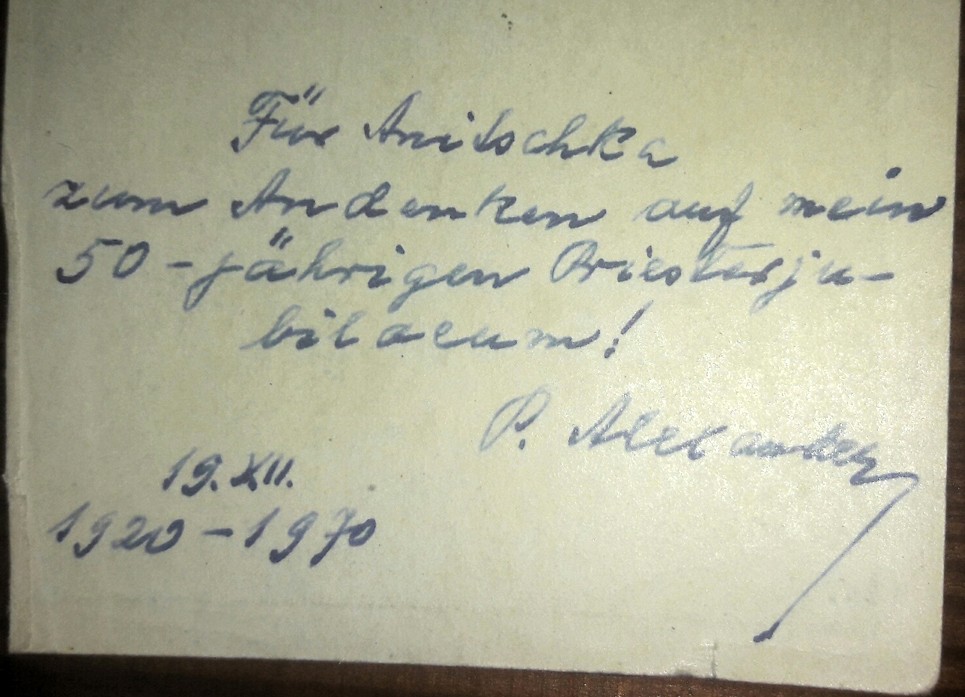 Für Anitschka
zum Andenken auf mein
50-jährigen Priesterju-
bilaeum!
P. Alexander
19. XII.
1920-1970